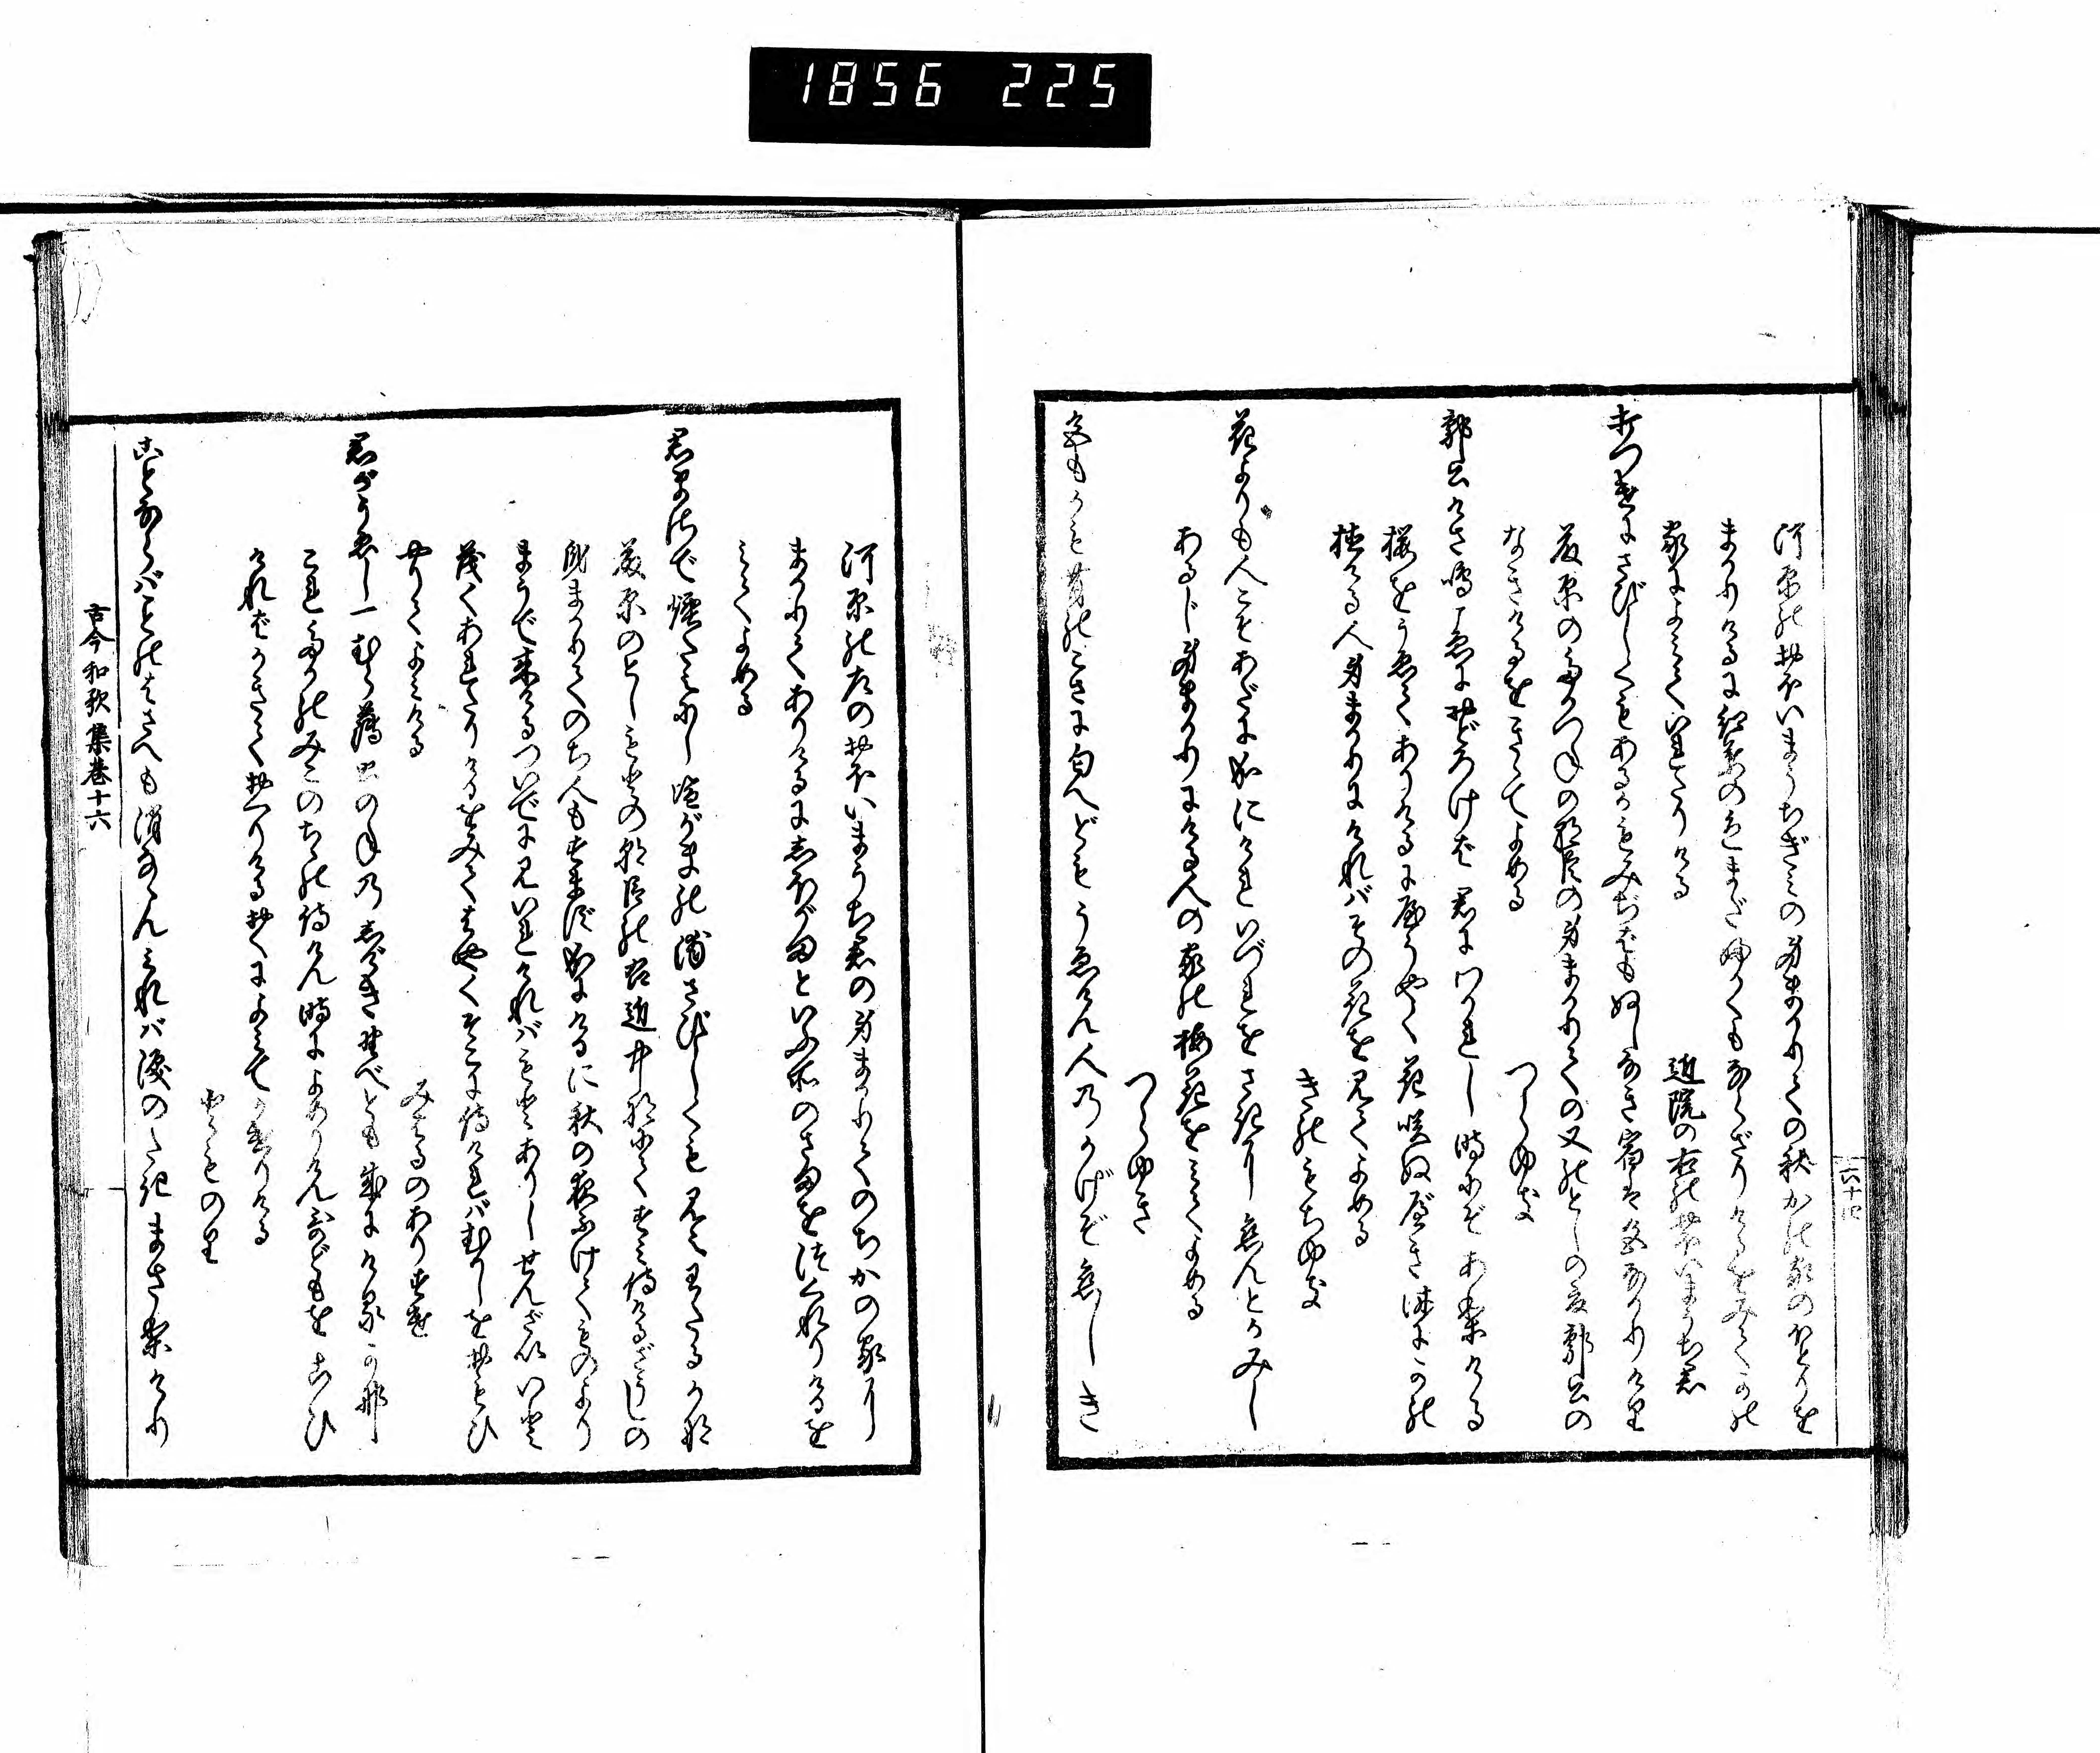 六十四
河原のおほいまうちぎみの身まかりての秋かの家のほとりを
まかりけるに紅葉の色まだふかくもならざりけるをみてかの
家によみていれたりける
近院の右のおほいまうち君
打つけにさびしくもあるかもみぢばもぬしなき宿は色なかりけり
藤原のたかつねの朝臣の身まかりての又のとしの夏郭公の
なきけるをきゝてよめる
つらゆき
郭公けさ鳴こゑにおどろけば君にわかれし時にぞありける
桜をうゑてありけるにやうやく花咲ぬべき時にかの
植ける人身まかりにければその花を見てよめる
きのもちゆき
花よりも人こそあだに成にけれいづれをさきに恋んとかみし
あるじ身まかりにける人の家の梅花をみてよめる
つらゆき
色もかも昔のこさに匂へどもうゑけん人のかげぞ恋しき
河原の左のおほいまうち君の身まかりてのちかの家に
まかりてありけるにしほがまといふ所のさまをつくれりけるを
みてよめる
君まさで煙たえにし塩がまの浦さびしくも見えわたるかな
藤原のとしもとの朝臣の右近中将にてすみ侍けるざうしの
身まかりてのち人もすまず成にけるに秋の夜ふけてものより
まうで来けるついでに見いれければもとありしせんざいいと
茂くあれたりけるをみてはやくそこに侍ければむかしをおもひ
やりてよみける
みはるのありすけ
君がうゑし一むら薄虫のねのしげき野べとも成にけるかな
これたかのみこのちゝの侍けん時によめりけん哥どもをこひ
ければかきておくりけるおくによみてかけりける
とものり
ことならばことのはさへも消なゝんみれば涙のたきまさりけり
古今和歌集巻十六
1856 225